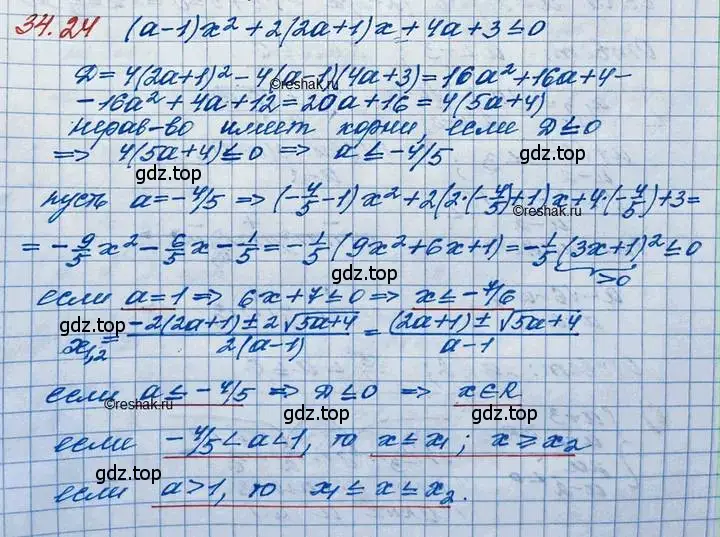 34.24 (a-1)x² + 2(2a+1)x + 4a+3 ≤ 0
D = 4(2a+1)² - 4(a-1)(4a+3) = 16a² + 16a + 4 -
- 16a² + 4a + 12 = 20a + 16 = 4(5a+4)
нерав-во имеет корни, если D ≤ 0
=> 4(5a+4) ≤ 0 => a ≤ -4/5
пусть a = -4/5 => (-4/5 - 1)x² + 2(2·(-4/5)+1)x + 4·(-4/5) + 3 =
= -9/5x² - 6/5x - 1/5 = -1/5(9x² + 6x + 1) = -1/5(3x+1)² ≤ 0
>0
если a = 1 => 6x + 7 ≤ 0 => x ≤ -7/6
x₁,₂ = -2(2a+1) ± 2√5a+4 / 2(a-1) = (2a+1) ± √5a+4 / a-1
если a ≤ -4/5 => D ≤ 0 => x ∈ R
если -4/5 < a < 1, то x ≤ x₁; x ≥ x₂
если a > 1, то x₁ ≤ x ≤ x₂.
©reshak.ru
©reshak.ru
gdz.top
gdz.top
gdz.top
gdz.top
©reshak.ru
gdz.top
gdz.top
gdz.top